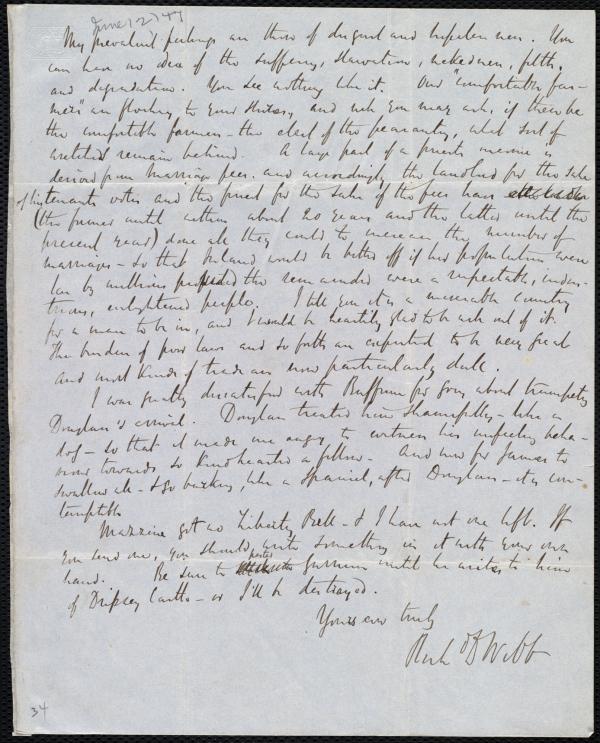 June (2) 47
My prevalent feelings are those of disgust and hopelessness. You
can have no idea of the suffering, starvation, nakedness, filth,
and degradation. You see nothing like it. Our "comfortable far-
mers" are flocking to your shores, and well you may ask, if these be
the comfortable farmers - the elect of the peasantry, what sort of
wretches remain behind. A large part of a priests income is
derived from marriage fees. and accordingly the landlord for the sake
of his tenants votes and the priest for the sake of the fees have
(the former until within about 20 years and the latter until the
present year) done all they could to increase the number of
marriages - so that Ireland would be better off if her population were
less by millions provided the remainder were a respectable, indus-
trious, enlightened people. I tell you it is a miserable country
for a man to be in, and I would be heartily glad to be well out of it.
The burden of poor laws and so forth are expected to be very great
and most kinds of trade are now particularly dull.
I was greatly dissatisfied with Buffum for going about trumpeting
Douglass's arrival. Douglass treated him shamefully - like a
dog - so that it made me angry to witness his unfeeling beha-
viour towards so kindhearted a fellow. And now for James to
swallow all - & go barking, like a spaniel, after Douglass - it is con-
temptible
Mazzini got no Liberty Bell - & I have not one left. If
you send one, you should write something in it with your own
hand. Be sure to Garrison until he writes to him
of Dripsey Castle - or I'll be destroyed.
Yours ever truly
Rich D Webb
34